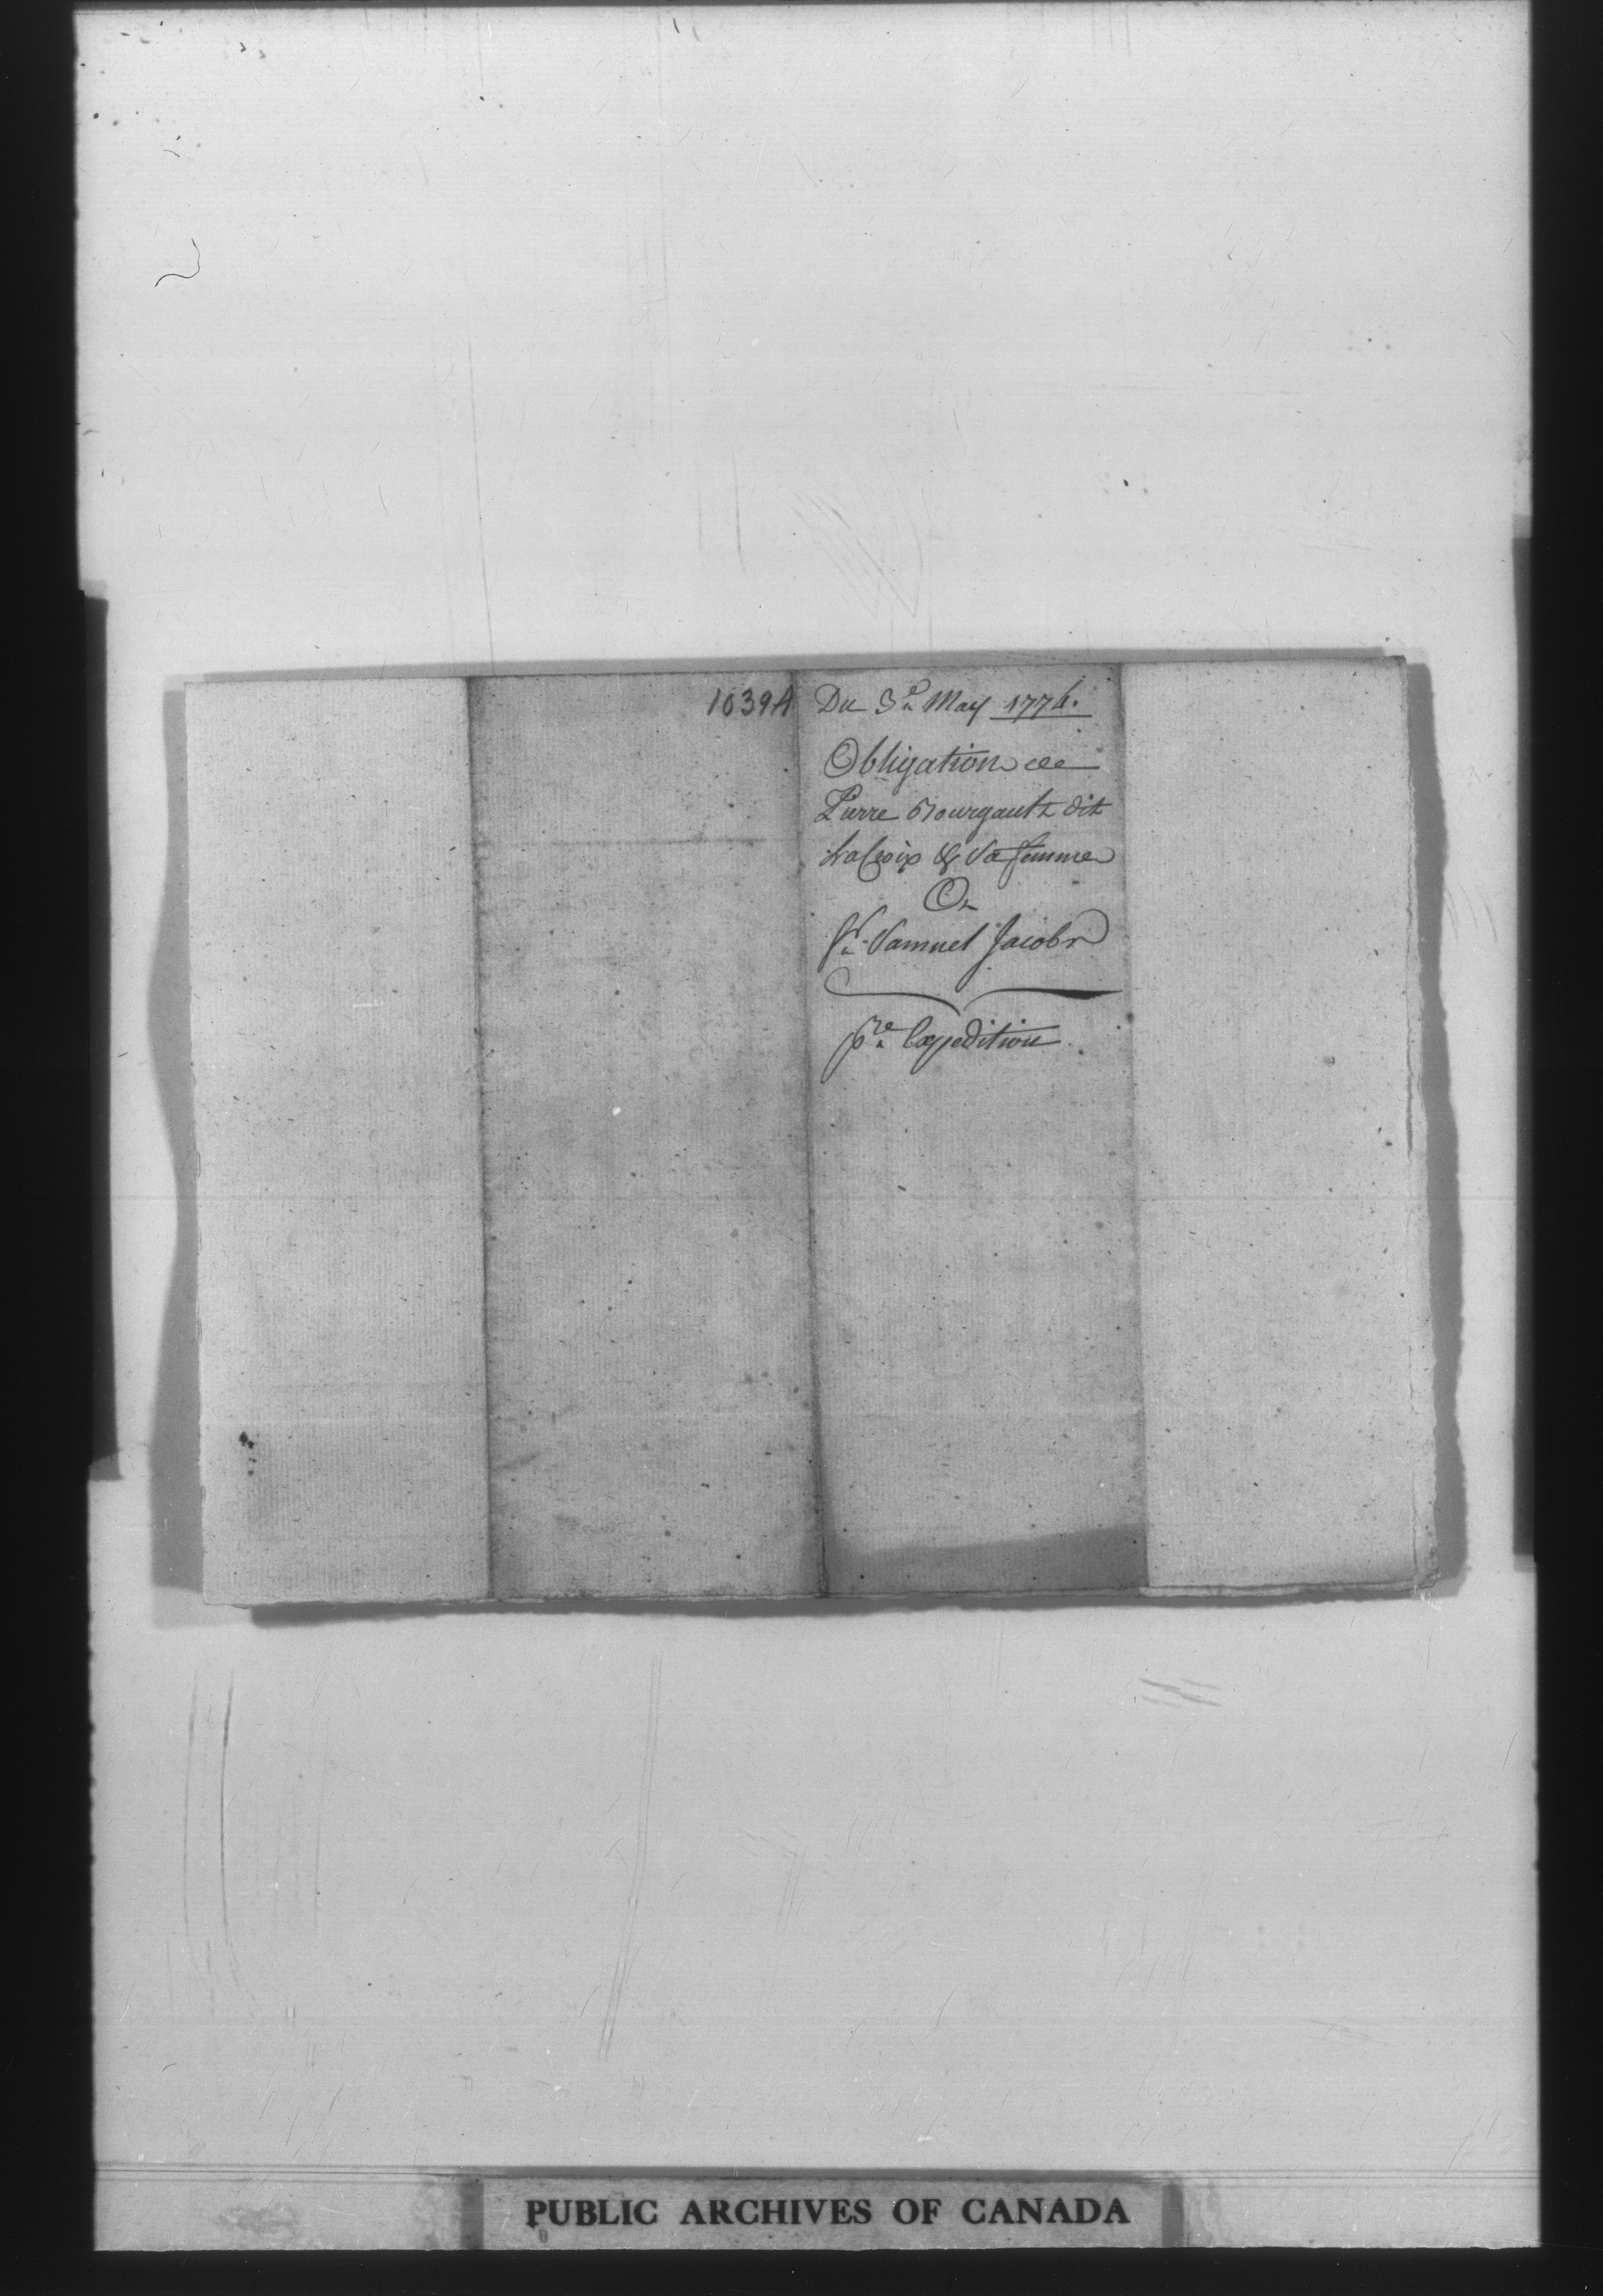 1039A
Du 3e May 1776.
Obligation de
Pierre Bourgault dit
LaCroix & Sa femme
A
Sr. Samuel Jacobs
pre. Expedition
PUBLIC ARCHIVES OF CANADA